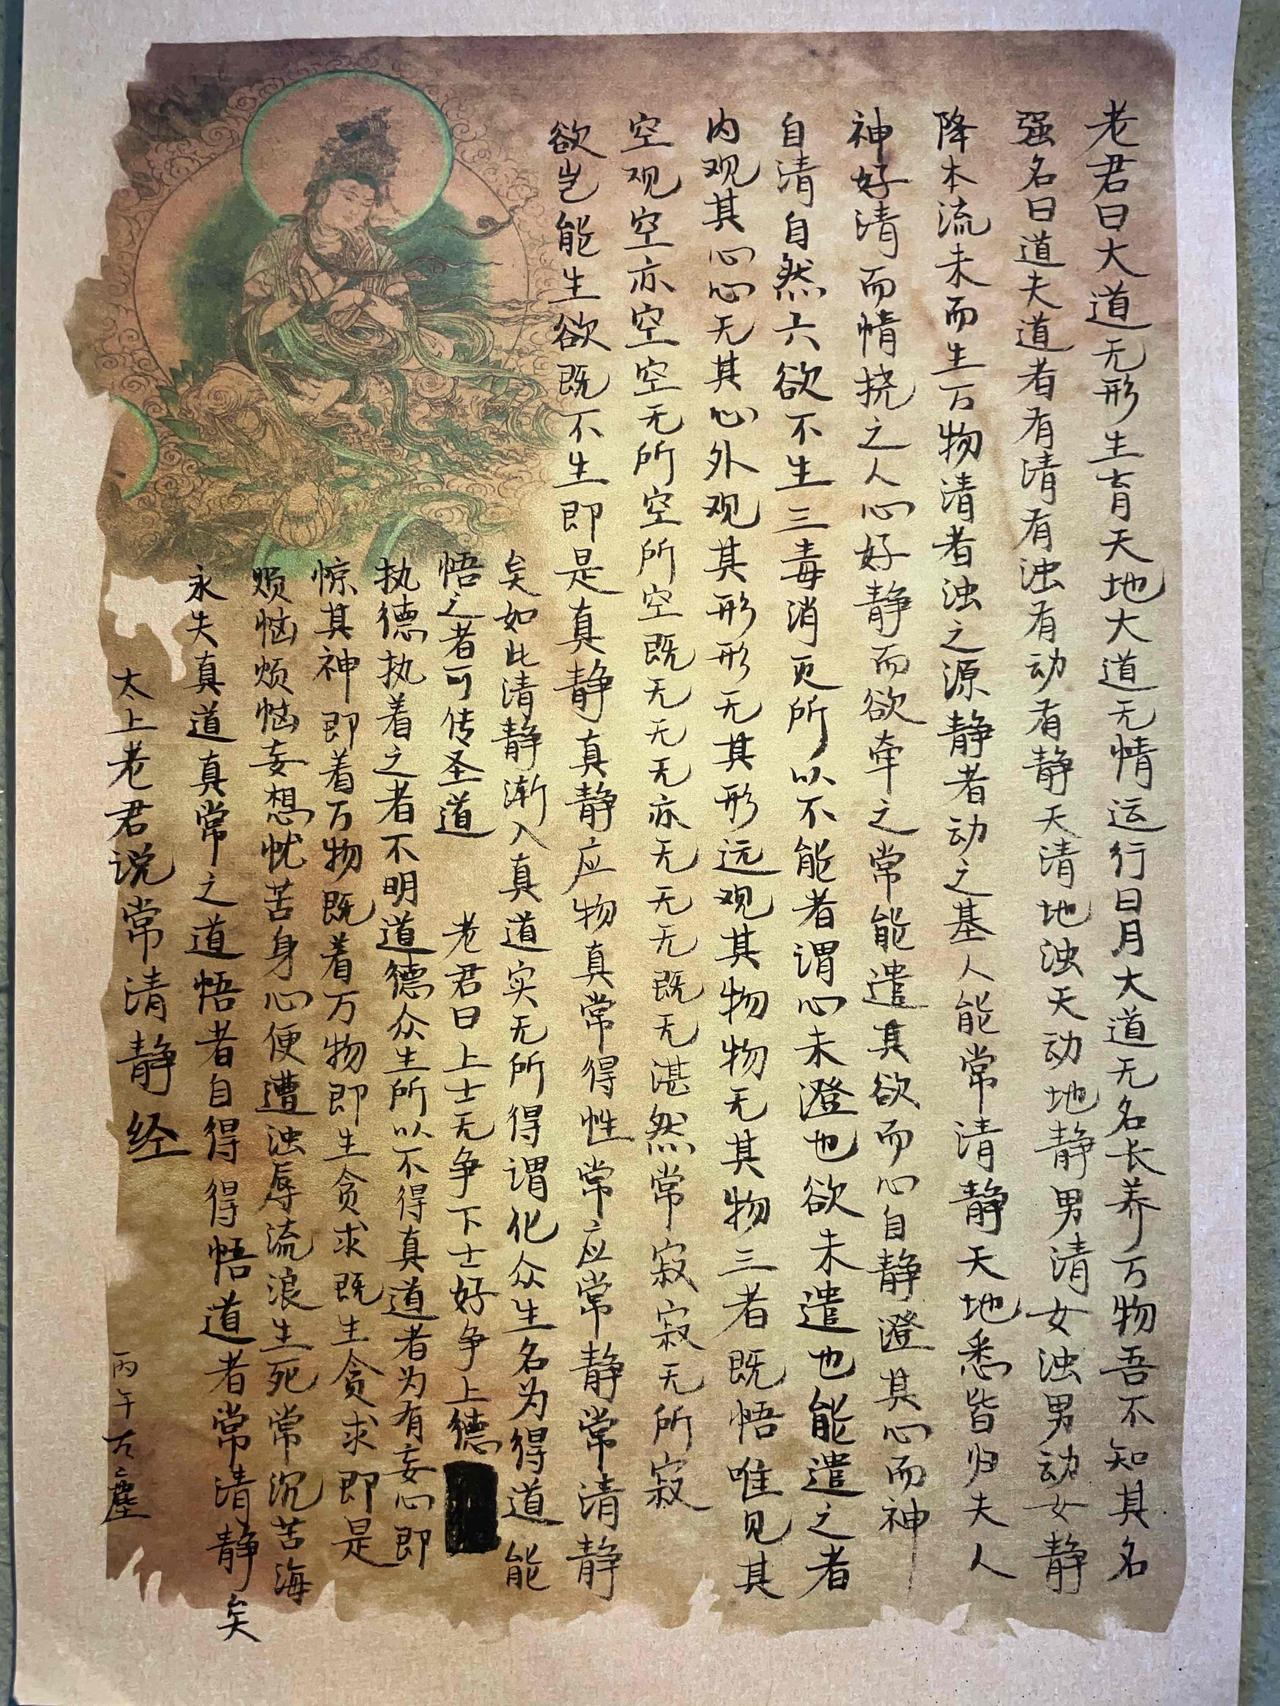 老君曰大道无形生育天地大道无情运行日月大道无名长养万物吾不知其名
强名曰道夫道者有清有浊有动有静天清地浊天动地静男清女浊男动女静
降本流末而生万物清者浊之源静者动之基人能常清静天地悉皆归夫人
神好清而情挠之人心好静而欲牵之常能遣其欲而心自静澄其心而神
自清自然六欲不生三毒消灭所以不能者谓心未澄也欲未遣也能遣之者
内观其心心无其心外观其形形无其形远观其物物无其物三者既悟唯见其
空观空亦空空无所空所空既无无无亦无无无既无湛然常寂寂无所寂
欲岂能生欲既不生即是真静真静应物真常得性常应常静常清静
矣如此清静渐入真道实无所得谓化众生名为得道能
悟之者可传圣道 老君曰上士无争下士好争上德
执德执着之者不明道德众生所以不得真道者为有妄心即
惊其神即着万物既着万物即生贪求既生贪求即是
烦恼烦恼妄想忧苦身心便遭浊辱流浪生死常沉苦海
永失真道真常之道悟者自得得悟道者常清静矣
太上老君说常清静经
丙午 塵